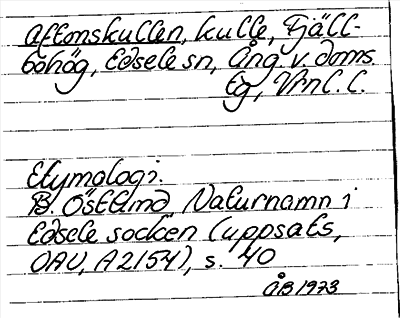 Aftonskullen, kulle, Fjäll-
bohög, Edsele sn, Ång. v. doms
lg, Vrn l. l.
Etymologi.
B. Östlind Naturnamn i
Edsele socken (uppsats,
OAU, A2154), s. 40
ÅB 1973